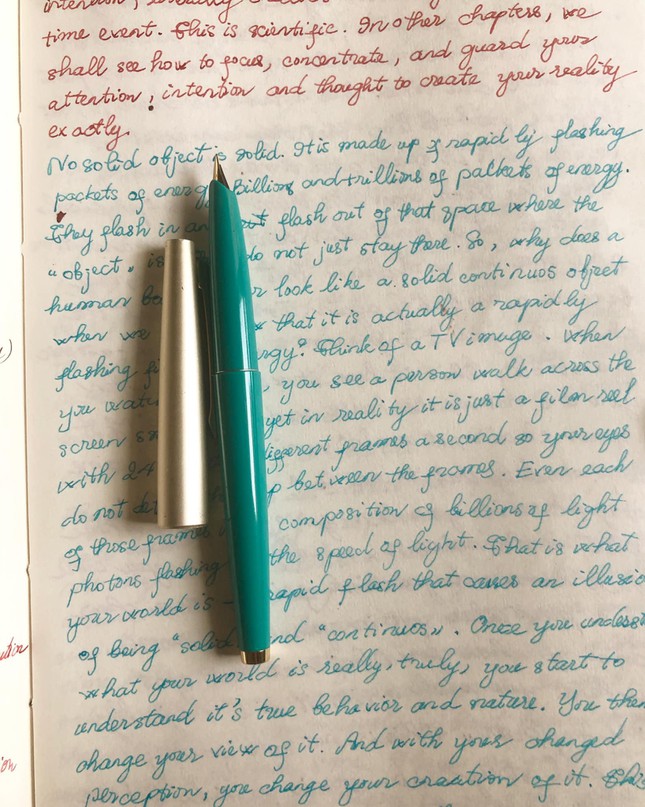 time event. This is scientific. In other chapters, we
shall see how to focus, concentrate, and guard your
attention, intention and thought to create your reality
exactly.
No solid object is solid. It is made up of rapidly flashing
packets of energy. Billions and trillions of packets of energy.
They flash in and out flash out of that space where the
"object" is do not just stay there. So, why does a
human look like a solid continuos object
when we that it is actually a rapidly
flashing Think of a TV image. When
you see a person walk across the
screen yet in reality it is just a film reel
with 24 different frames a second so your eyes
do not between the frames. Even each
of those frames composition of billions of light
photons flashing the speed of light. That is what
your world is rapid flash that causes an
of being "solid and "continuos". Once you
what your world is really, truly, you start to
understand it's true behavior and nature. You then
change your view of it. And with your changed
perception, you change your creation of it.